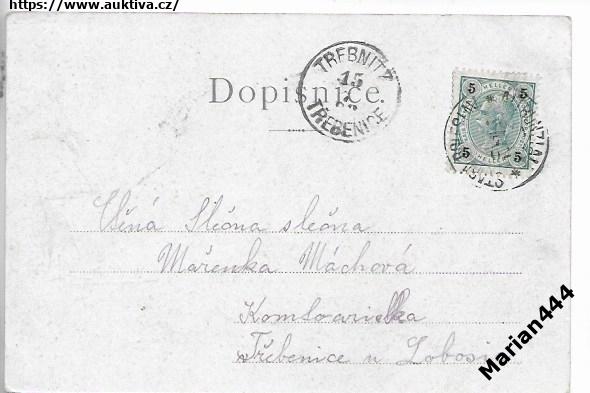 https://www.auktiva.cz/
Dopisnice.
TŘEBNITZ
15
TŘEBENICE
5 5
5 5
HELLER
Ctěná Slečna slečna
Mařenka Máchová
Třebenice u Lobosic
Marian444